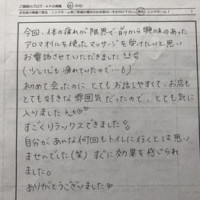 今回、体の疲れが限界で、前から興味のあった
アロマオイルを使ったマッサージを受けたいと思い
お電話させていただきました
(ツレにも疲れていたので…)
初めて会ったのに とてもお話しやすくて、お店も
とても引きな雰囲気だったので、とても気に
入りました
すごくリラックスできました
自分があんな何回もトイレに行くとは思い
ませんでした(笑) すぐに効果を感じられ
ました
ありがとうございました